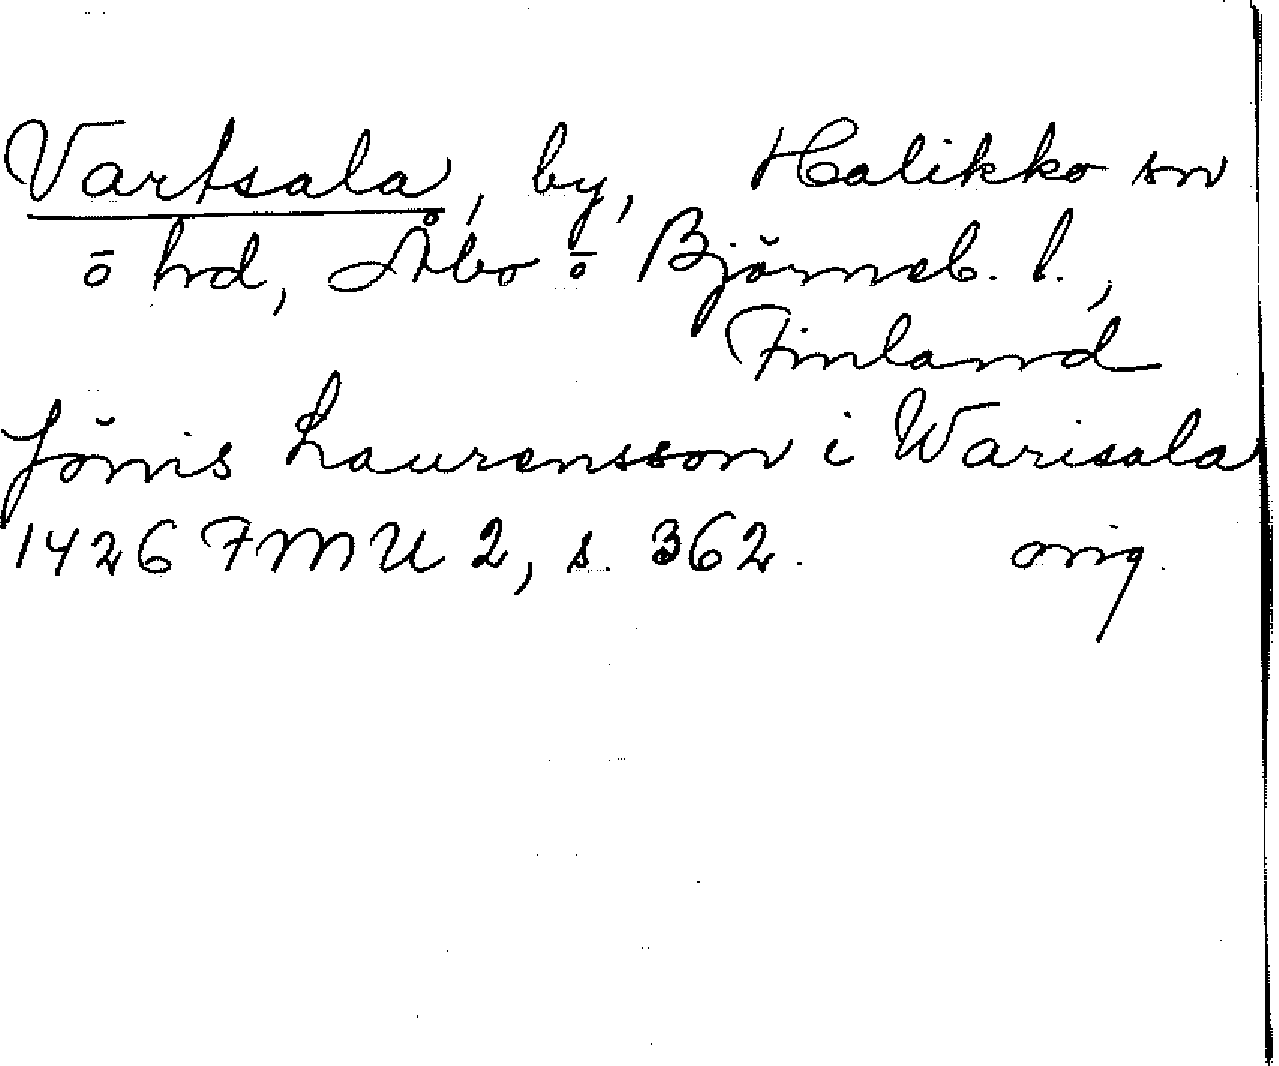 Vartsala, by, Halikko sn
o hd, Åbo o Björneb. l.,
Finland
Jönis Laurensson i Warisala
1426 FMU 2, s. 362. orig.